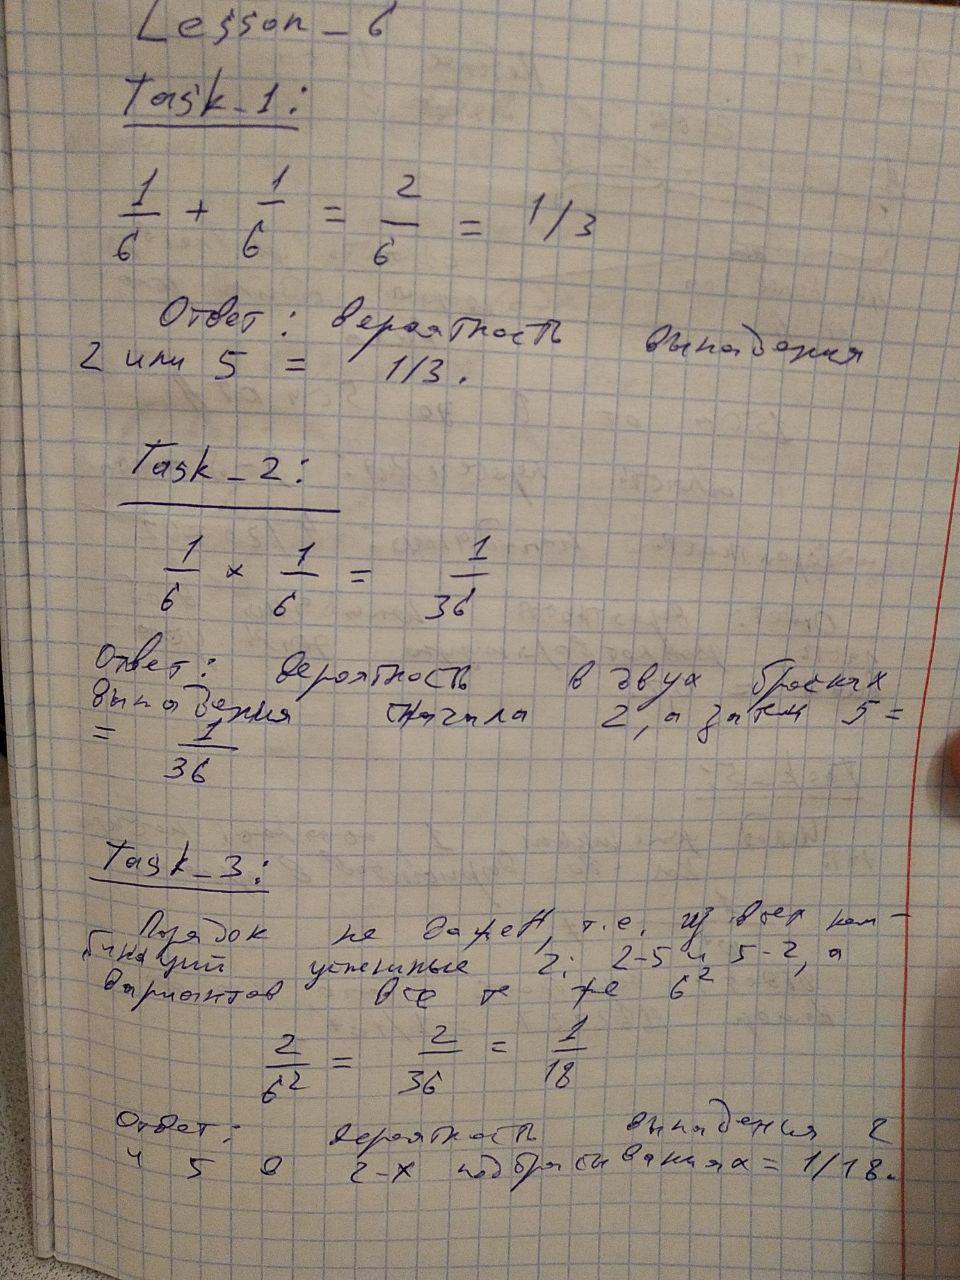 Lesson_6
Task_1:
1/6 + 1/6 = 2/6 = 1/3
Ответ: вероятность выпадения
2 или 5 = 1/3.
Task_2:
1/6 × 1/6 = 1/36
Ответ: вероятность в двух бросках
выпадения сначала 2, а затем 5 =
= 1/36
Task_3:
Порядок не важен, т.е. из всех ком-
бинаций успешные 2: 2-5 и 5-2, а
вариантов все те же 6²
2/6² = 2/36 = 1/18
Ответ: вероятность выпадения 2
и 5 в 2-х подбрасываниях = 1/18.